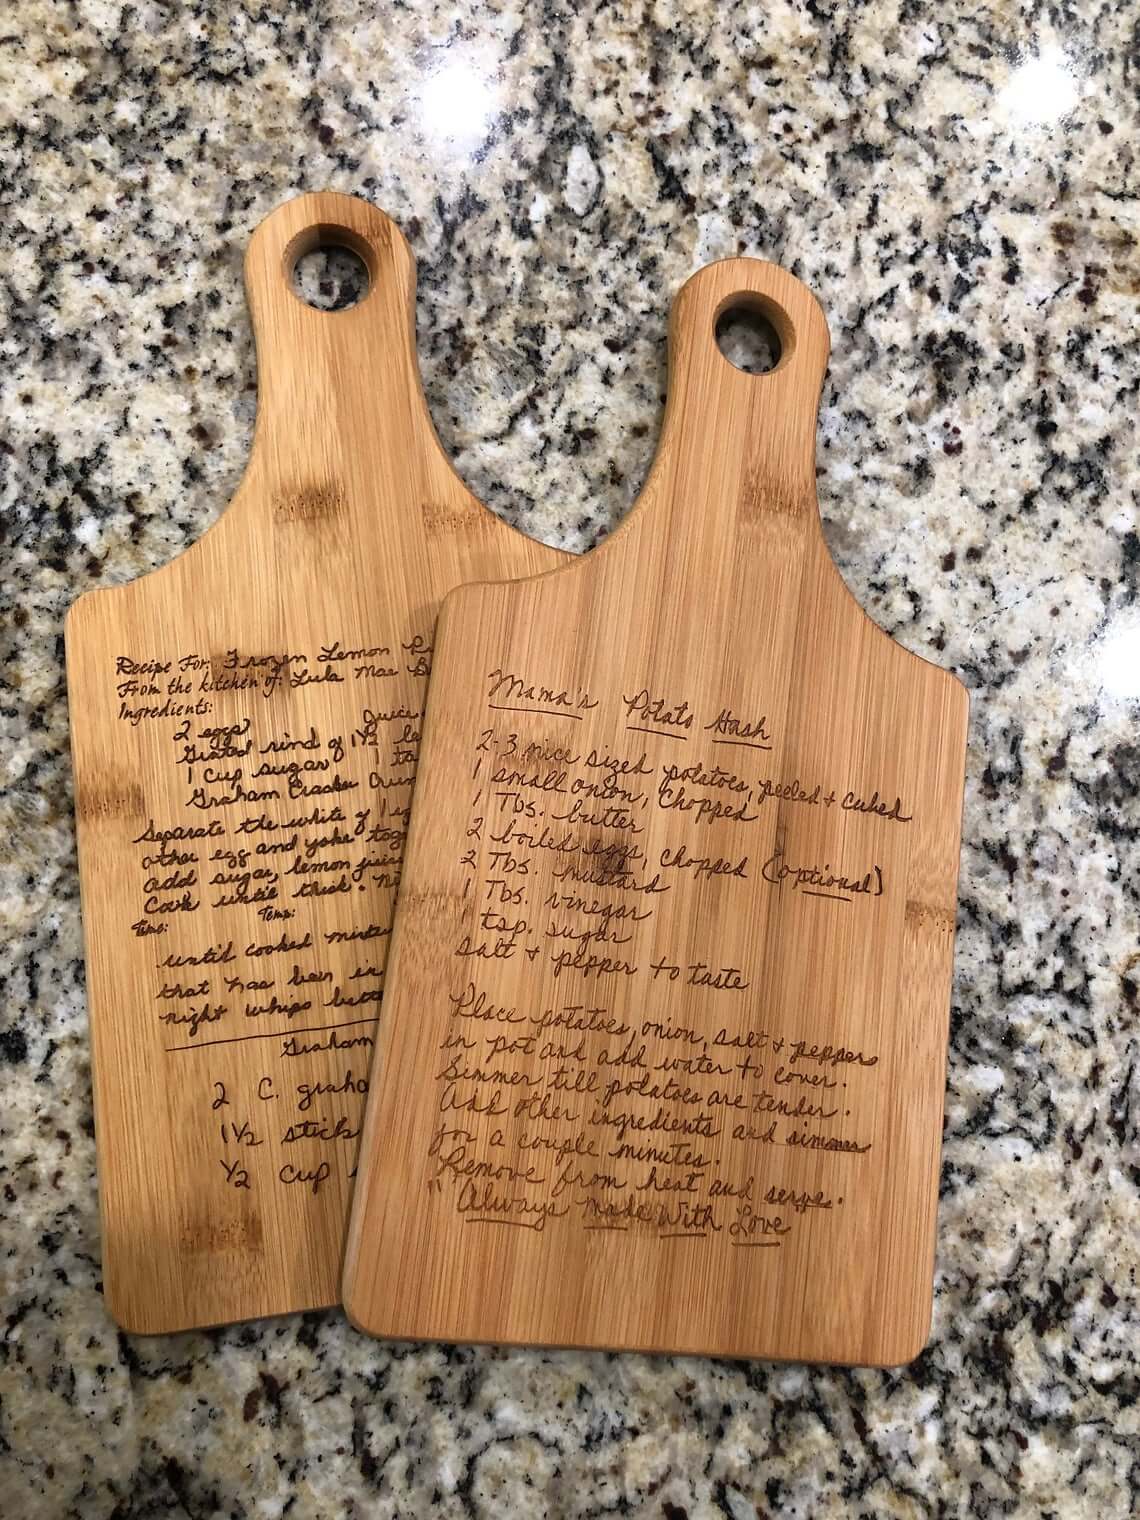 Recipe For: Frozen Lemon
From the kitchen of: Lula Mae
Ingredients:
2 eggs Juice
Grated rind of 1½
1 cup sugar 1
Graham Cracker Crum
Separate the white of 1
other egg and yoke tog
add sugar, lemon juice
Cook until thick.
Time: Temp:
until cooked
that has been in
night whips
Graham
2 C. graha
1½ stick
½ cup
Mama's Potato Hash
2-3 nice sized potatoes, peeled + cubed
1 small onion, chopped
1 Tbs. butter
2 boiled eggs, chopped (optional)
2 Tbs. mustard
1 Tbs. vinegar
1 tsp. sugar
salt + pepper to taste
Place potatoes, onion, salt + pepper
in pot and add water to cover.
Simmer till potatoes are tender.
Add other ingredients and simmer
for a couple minutes.
Remove from heat and serve.
"Always Made With Love